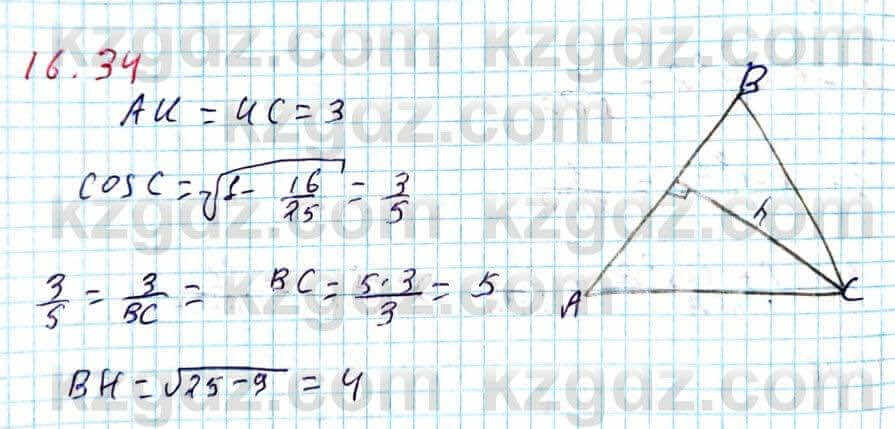 kzgdz.com kzgdz.com
16.34
B
AH = HC = 3
kzgdz.com kzgdz.com
cos C = √1 - 16/25 = 3/5
kzgdz.com kzgdz.com
h
3/5 = 3/BC = BC = 5·3/3 = 5
A C
kzgdz.com kzgdz.com
BH = √25-9 = 4
kzgdz.com kzgdz.com